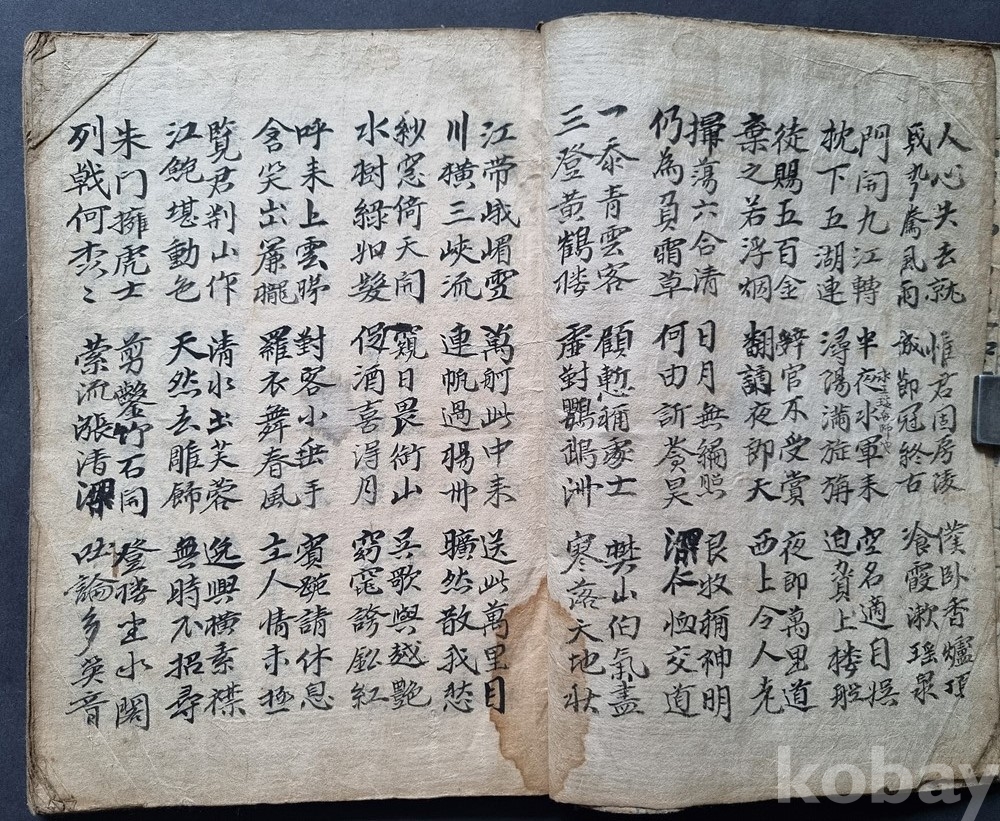 人心失去就
賊勢騰風雨
惟君固房陵
誠節冠終古
僕臥香爐頂
飡霞漱瑤泉
門開九江轉
枕下五湖連
半夜水軍来
潯陽滿旌旃
空名適自誤
迫脅上樓船
徒賜五百金
棄之若浮烟
辞官不受賞
翻謫夜郎天
夜郎萬里道
西上令人老
掃蕩六合清
仍為負霜草
日月無偏照
何由訴蒼昊
良牧稱神明
深仁恤交道
一忝青雲客
三登黃鶴楼
顧慙禰處士
虛對鸚鵡洲
樊山伯氣盡
寥落天地秋
江帶峨嵋雪
川橫三峽流
萬舸此中来
連帆過揚州
送此萬里目
曠然散我愁
紗窓倚天開
水樹綠如髮
窺日畏銜山
促酒喜淂月
吳歌與越艷
窈窕誇鈆紅
呼来上雲梯
含笑出簾櫳
對客小垂手
羅衣舞春風
賓跪請休息
主人情未極
覽君荊山作
江鮑堪動色
清水出芙蓉
天然去雕飾
逸興橫素襟
無時不招尋
朱门擁虎士
列戟何森〻
剪鑿竹石開
縈流漲清深
登楼坐水閣
吐論多英音
kobay